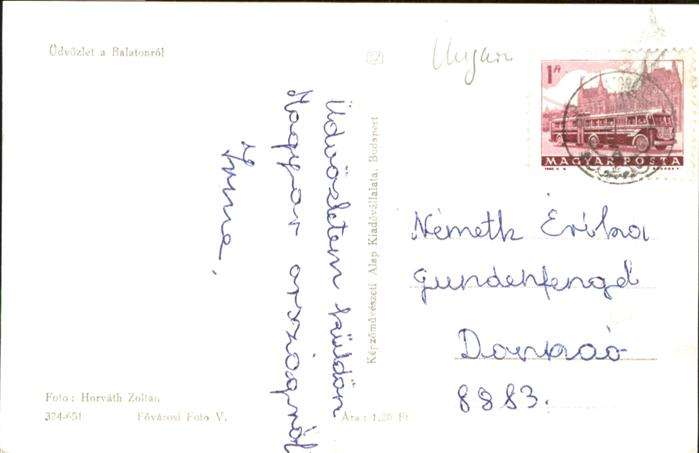 Üdvözlet a Balatonról
Ungarn
1 Ft
MAGYAR POSTA
Üdvözletem küldöm
Magyar országról
Irma.
Képzőművészeti Alap Kiadóvállalata, Budapest
Németh Erika
Gundenfengd
Dankaó
8883.
Foto: Horváth Zoltán
324-651 Fővárosi Foto V. Ára: 1,20 Ft